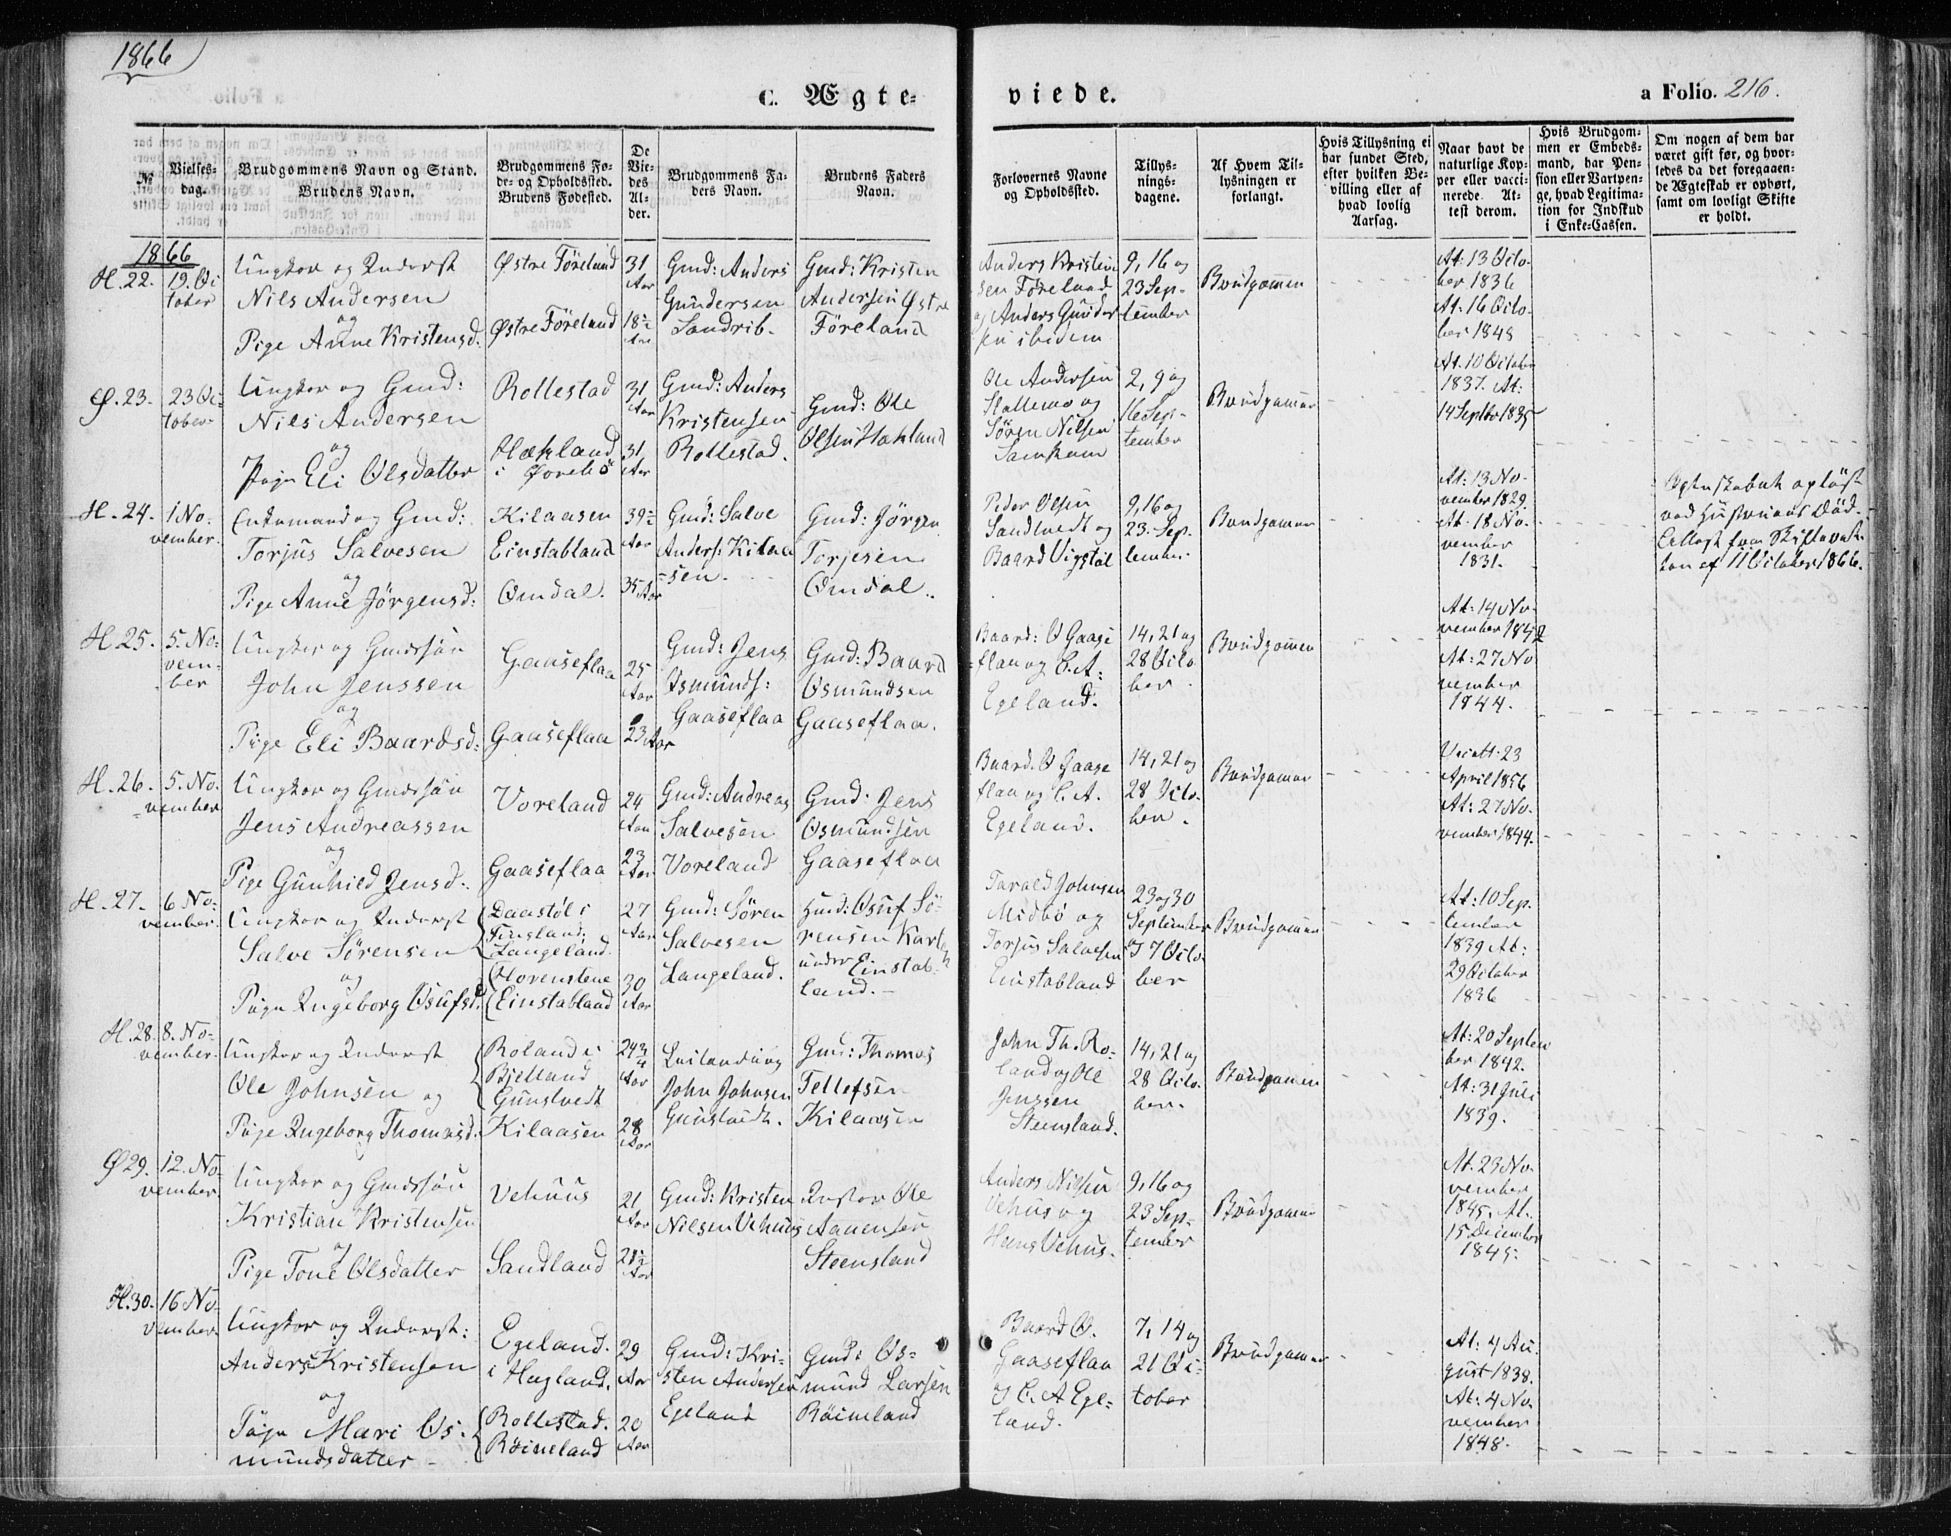 1866
C. Ægte-
viede.
a Folio. 216.
№
Vielses-
dag.
Brudgommens Navn og Stand.
Brudens Navn.
Brudgommens Fø-
de- og Opholdssted.
Brudens Fødested.
De
Vie-
des
Al-
der.
Brudgommens Fa-
ders Navn.
Brudens Faders
Navn.
Forlovernes Navne
og Opholdssted.
Tillys-
nings-
dagene.
Af Hvem Til-
lysningen er
forlangt.
Hvis Tillysning ei
har fundet Sted,
efter hvilken Be-
villing eller af
hvad lovlig
Aarsag.
Naar havt de
naturlige Kop-
per eller vacci-
nerede. At-
test derom.
Hvis Brudgom-
men er Embeds-
mand, har Pen-
sion eller Vartpen-
ge, hvad Legitima-
tion for Indskud
i Enke-Cassen.
Om nogen af dem har
været gift før, og hvor-
ledes da det foregaaen-
de Ægteskab er ophørt,
samt om lovligt Skifte
er holdt.
1866
H. 22.
19. Oc
tober
Ungkar og Inderst
Nils Andersen
og
Pige Anne Kristensd.
Østre Föreland
Østre Föreland
31
Aar
18½
Aar
Gmd: Anders
Gundersen
Sandrib.
Gmd: Kristen
Andersen Østre
Föreland
Anders Kristen
sen Föreland
og Anders Gunder
sen ibidem
9, 16 og
23 Sep-
tember
Brudgommen
At: 13 Octo-
ber 1836
At: 16 Octo-
ber 1848
Ø. 23.
23 Oc-
tober
Ungkar og Gmd:
Nils Andersen
og
Pige Eli Olsdatter
Rollestad
Hækland
i Øvrebö
31
Aar
31
Aar
Gmd: Anders
Kristensen
Rollestad.
Gmd: Ole
Olsen Hækland
Ole Andersen
Stallemo og
Sören Nilsen
2, 9 og
16 Sep-
tember
Brudgommen
At. 10 October
1837. At:
14 Septbr 1835
H. 24.
1 No-
vember.
Enkemand og Gmd:
Torjus Salvesen
og
Pige Anne Jörgensd:
Kilaasen
Einstabland
Omdal.
39½
Aar
35 Aar
Gmd: Salve
Anders: Kilaa
sen.
Gmd: Jörgen
Torjesen
Omdal.
Peder Olsen
Sandvedt og
Baard Vigstöl
9, 16 og
23. Sep-
tember.
Brudgommen
At: 13 No-
vember 1829
At: 18 No-
vember
1831.
Ægteskabet oplöst
ved Hustruens Död.
Attest fra Skifteret-
ten af 11 October 1866.
H. 25.
5. No-
vem-
ber
Ungkar og Gmdssön
John Jenssen
og
Pige Eli Baardsd:
Gaaseflaa
Gaaseflaa
25
Aar
23 Aar
Gmd: Jens
Osmunds:
Gaaseflaa
Gmd: Baard
Osmundsen
Gaaseflaa.
Baard: O Gaase
flaa og C. A:
Egeland.
14, 21 og
28 Octo
ber
Brudgommen
At: 14 No-
vember 1842
At: 27 No
vember
1844.
H. 26.
5. No-
vember
Ungkar og Gmdssön
Jens Andreassen
og
Pige Gunhild Jensd.
Voreland
Gaaseflaa
24
Aar
23
Aar
Gmd: Andreas
Salvesen
Voreland
Gmd: Jens
Osmundsen
Gaaseflaa
Baard. O Gaase
flaa og C. A.
Egeland.
14, 21 og
28 Octo-
ber.
Brudgommen
Vacatt: 23
April 1856
At: 27 No-
vember 1844.
H. 27.
6 No-
vember.
Ungkar og Inderst
Salve Sörensen
og
Pige Ingeborg Osufsd.
Daastöl i
Finsland:
Langeland.
Horenstene
Einstabland
27
Aar
30
Aar
Gmd: Sören
Salvesen
Langeland.
Hmd: Osuf Sö-
rensen
under Einstab-
land.
Tarald Johnsen
Midbö og
Torjus Salvesen
Einstabland
23 og 30
September
& 7 Octo-
ber
Brudgommen
At: 10 Sep-
tember
1839 At:
29 October
1836
H. 28.
8. No-
vember.
Ungkar og Inderst
Ole Johnsen og
Pige Ingeborg Thomasd.
Roland i
Bjelland
Gunstvedt
Kilaasen
24¾
Aar
28
Aar
Leilænding
John Johnsen
Gunstvedt.
Gmd: Thomas
Tellefsen
Kilaasen
John Th. Ro-
land og Ole
Jenssen
Steensland.
14, 21 og
28 Octo-
ber.
Brudgommen
At: 20 Septem
ber 1842.
At: 31 Juli
1839.
Ø 29.
12. No-
vember.
Ungkar og Gmdssön
Kristian Kristensen
og
Pige Tone Olsdatter
Vehuus
Sandland
21
Aar
21½
Aar
Gmd: Kristen
Nilsen Vehuus
Inster Ole
Aanensen
Steensland
Anders Nilsen
Vehus og
Hans Vehus.
9, 16 og
23 Sep-
tember
Brudgommen
At. 23 No-
vember
1845. At.
15 December
1845.
H. 30.
16 No-
vember.
Ungkar og Inderst:
Anders Kristensen
og
Pige Mari Os-
mundsdatter
Egeland.
i Hægland.
Rollestad.
Röineland
29
Aar
20
Aar
Gmd: Kri-
sten Andersen
Egeland
Gmd: Os-
mund Larsen
Röineland
Baard O.
Gaaseflaa
& C. A Ege-
land.
7, 14 og
21 Oc-
tober
Brudgommen
At: 4 Au-
gust 1838.
At: 4 No-
vember
1848.